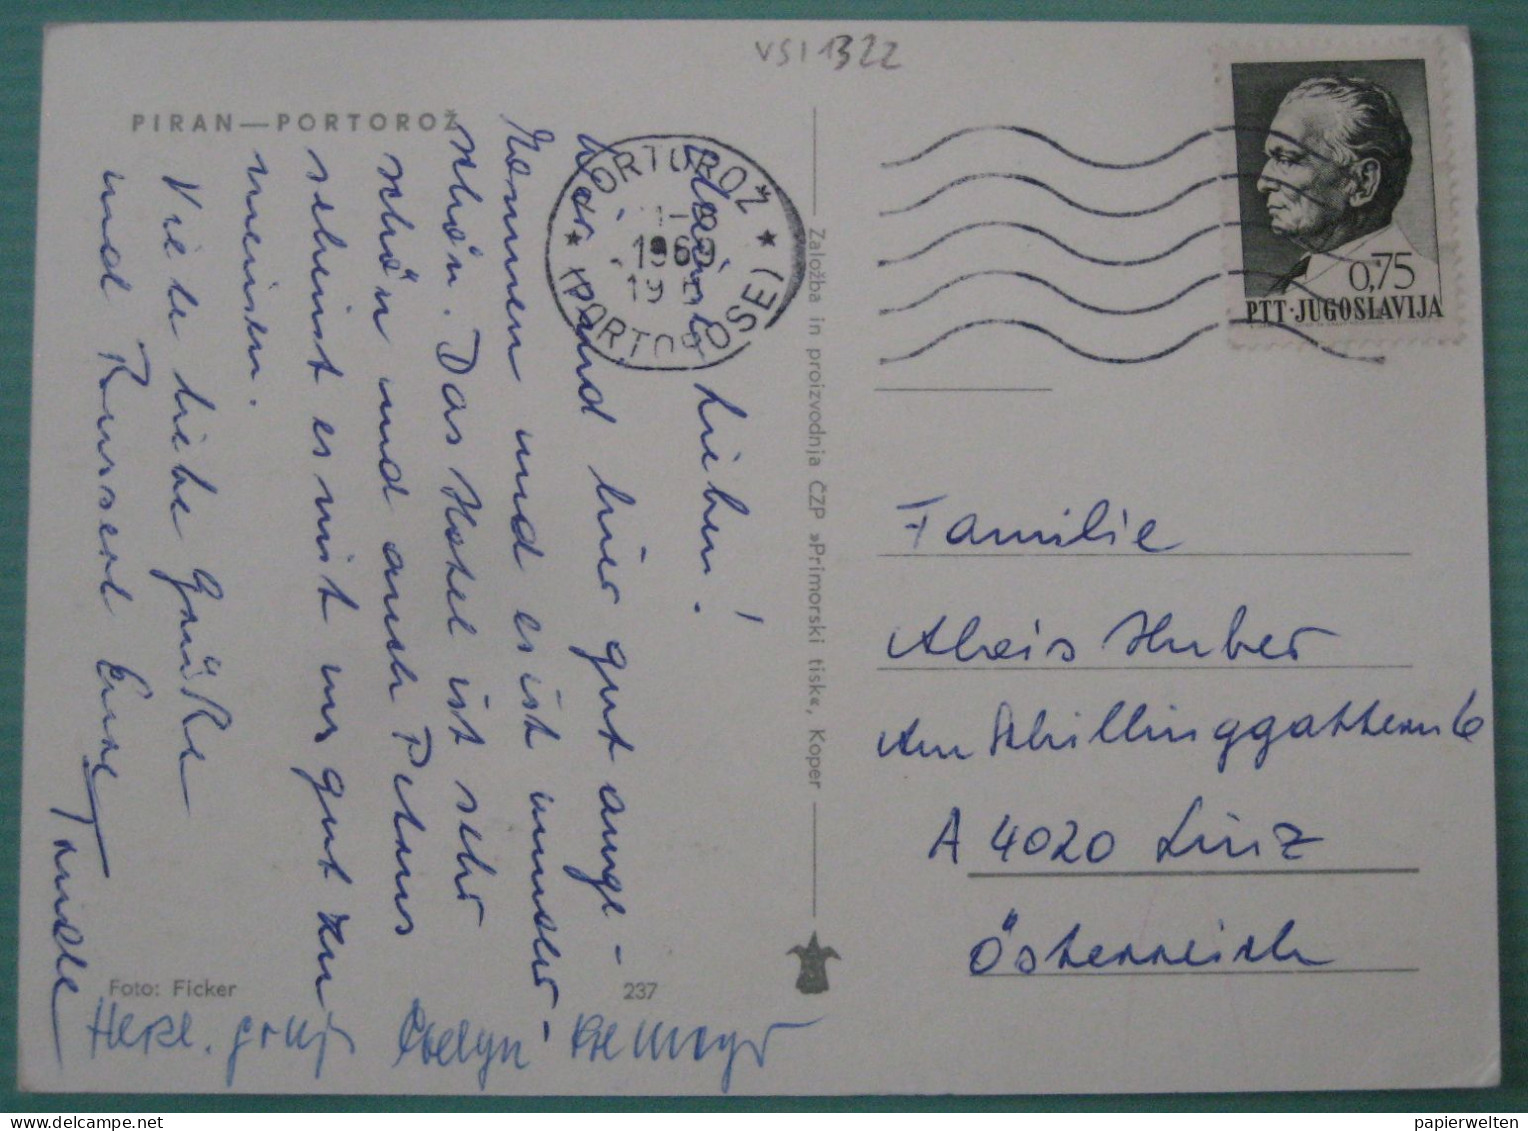 VSI 1322
PIRAN—PORTOROŽ
PORTOROŽ
1969
19
(PORTOROSE)
0,75
PTT·JUGOSLAVIJA
Meine Lieben!
Wir sind hier gut ange-
kommen und es ist wunder-
schön. Das Hotel ist sehr
schön und auch Petrus
scheint es mit uns gut zu
meinen.
Viele liebe Grüße
und Busserl Eure
Založba in proizvodnja ČZP »Primorski tisk«, Koper
Familie
Alois Huber
Am Schillinggattern 6
A 4020 Linz
Österreich
Foto: Ficker
237
Herzl. Evelyn
papierwelten